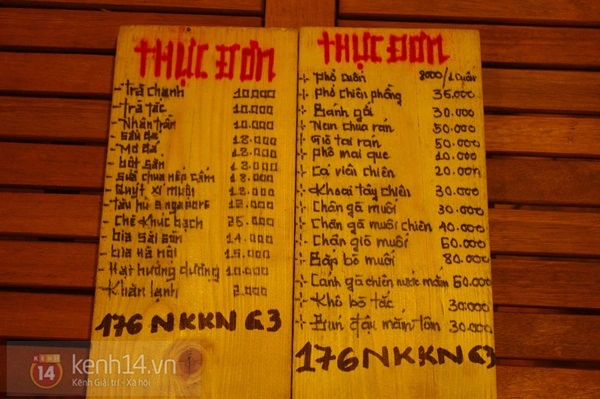 THỰC ĐƠN
- Trà chanh 10.000
- Trà tắc 10.000
- Nhân trần 10.000
- Sấu đá 18.000
- Mơ đá 18.000
- bột sắn 18.000
- sữa chua nếp cẩm 18.000
- Quýt xí muội 18.000
- tàu hũ singapore 15.000
- Chè Khúc bạch 25.000
- bia sài sòn 14.000
- bia hà nội 15.000
- Hạt hướng dương 10.000
- Khăn lạnh 2.000
176 NKKN G3
THỰC ĐƠN
+ Phở cuốn 8000/1 cuốn
+ Phở chiên phồng 35.000
+ Bánh gối 30.000
+ Nem chua rán 50.000
+ Giò tai rán 50.000
+ Phô mai que 10.000
+ Cá viên chiên 20.000
+ Khoai tây chiên 30.000
+ Chân gà muối 30.000
+ Chân gà muối chiên 40.000
+ Chân giò muối 60.000
+ Bắp bò muối 80.000
+ Cánh gà chiên nước mắm 60.000
+ Khô bò tắc 30.000
+ Bún đậu mắm tôm 30.000
176 NKKN G3
14
kenh14.vn
Kênh Giải trí - Xã hội